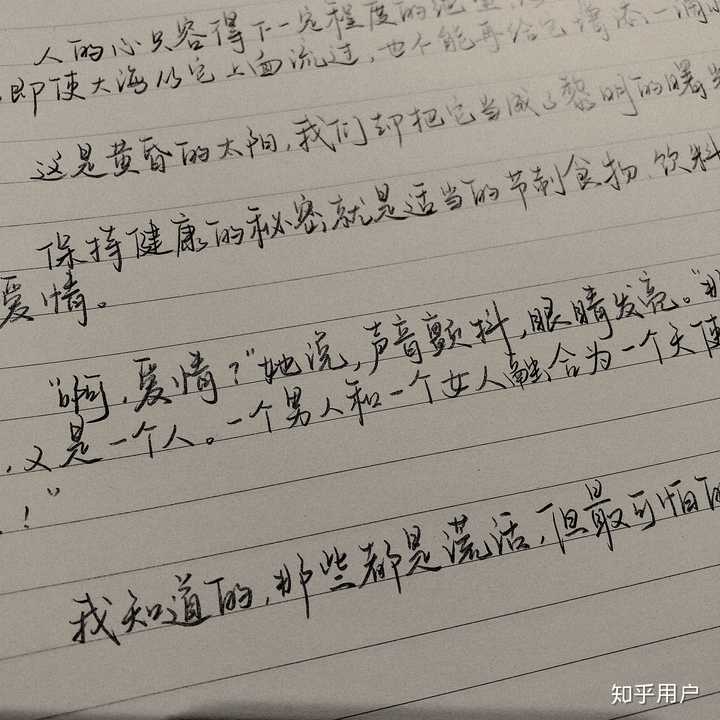 人的心只容得下一定程度的绝望,
即使大海从它上面流过,也不能再给它增添一滴
这是黄昏的太阳,我们却把它当成了黎明的曙
保持健康的秘密就是适当的节制食物、饮料
爱情。
“啊,爱情?”她说,声音颤抖,眼睛发亮。“那
,又是一个人。一个男人和一个女人融合为一个天使
!”
我知道的,那些都是谎话,但最可怕的
知乎用户